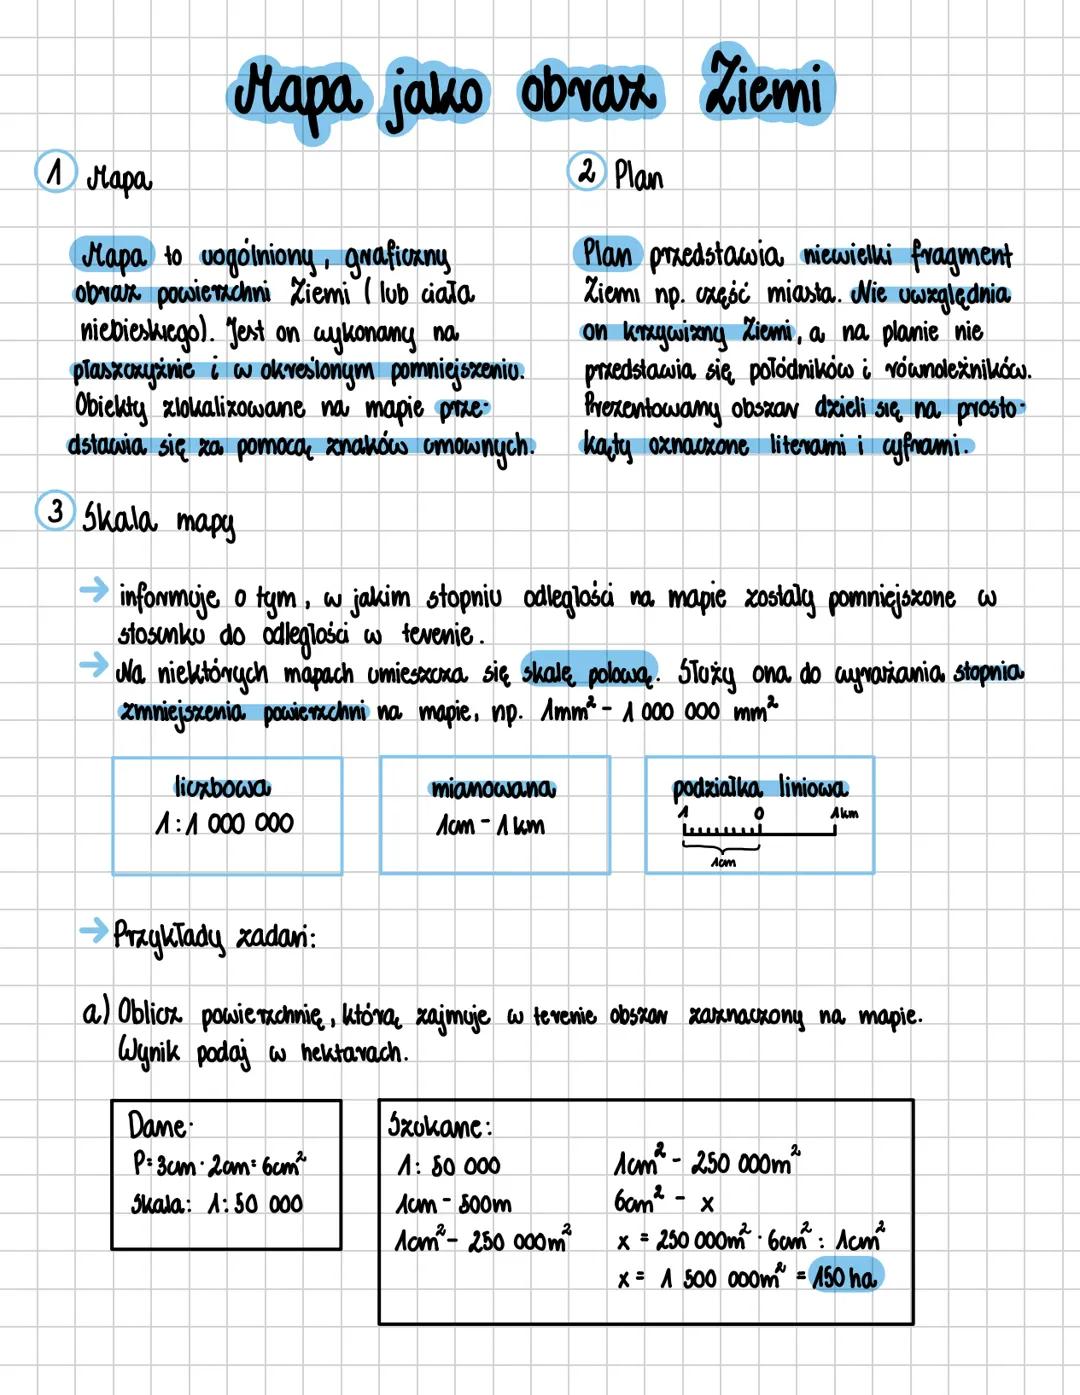 Mapa jako obraz Ziemi
1 Mapa
2 Plan
Mapa to uogólniony, graficzny
obraz powierzchni Ziemi (lub ciała
niebieskiego). Jest on wykonany na
płaszczyźnie i w określonym pomniejszeniu.
Obiekty zlokalizowane na mapie prze-
dstawia się za pomocą znaków umownych.
Plan przedstawia niewielki fragment
Ziemi np. część miasta. Nie uwzględnia
on krzywizny Ziemi, a na planie nie
przedstawia się południków i równoleżników.
Prezentowany obszar dzieli się na prosto-
kąty oznaczone literami i cyframi.
3 Skala mapy
→ informuje o tym, w jakim stopniu odległości na mapie zostały pomniejszone w
stosunku do odległości w terenie.
→ Na niektórych mapach umieszcza się skalę polową. Służy ona do wyrażania stopnia
zmniejszenia powierzchni na mapie, np. 1mm² - 1 000 000 mm²
liczbowa
1:1 000 000
mianowana
1cm - 1km
podziałka liniowa
1 0 1km
1cm
→ Przykłady zadań:
a) Oblicz powierzchnię, którą zajmuje w terenie obszar zaznaczony na mapie.
Wynik podaj w hektarach.
Dane:
P=3cm·2cm=6cm²
Skala: 1:50 000
Szukane:
1:50 000
1cm - 500m
1cm² - 250 000m²
1cm² - 250 000m²
6cm² - x
x = 250 000m² · 6cm² : 1cm²
x = 1 500 000m² = 150 ha